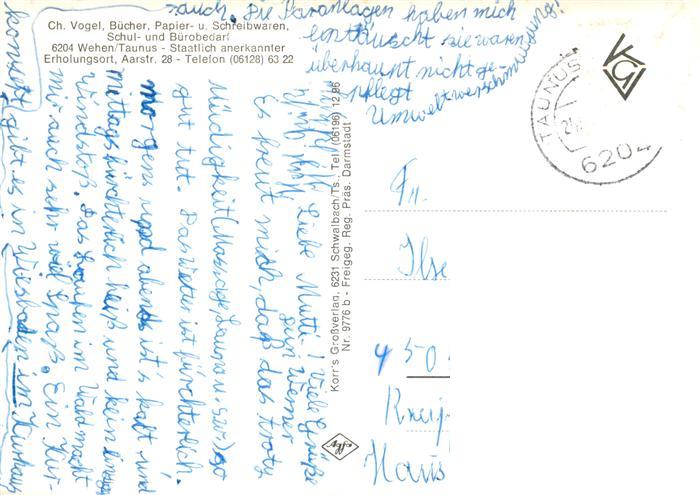 Ch. Vogel, Bücher, Papier- u. Schreibwaren,
Schul- und Bürobedarf
6204 Wehen/Taunus - Staatlich anerkannter
Erholungsort, Aarstr. 28 - Telefon (06128) 63 22
Liebe Mutti!
Es freut mich, daß das trotz
Müdigkeit (Massage, Sauna u.s.w.) so
gut tut. Das Wetter ist fürchterlich.
morgens und abends ist's kalt und
mittags fürchterlich heiß und kein
Windstoß. Das Laufen im Wald macht
mir auch sehr viel Spaß. Ein Kur-
konzert gibt es in Wiesbaden im Kurhaus
auch. Die Paranlagen haben mich
enttäuscht sie waren
überhaupt nicht ge-
pflegt
Umweltverschmutzung!
Viele Grüße
Dein Werner
Korr's Großverlag, 6231 Schwalbach/Ts., Tel. (06196) 12 86
Nr. 9776 b - Freigeg. Reg. Präs. Darmstadt
Agfa
TAUNUS
6204
Fr.
Ilse
450
Kneip
Haus